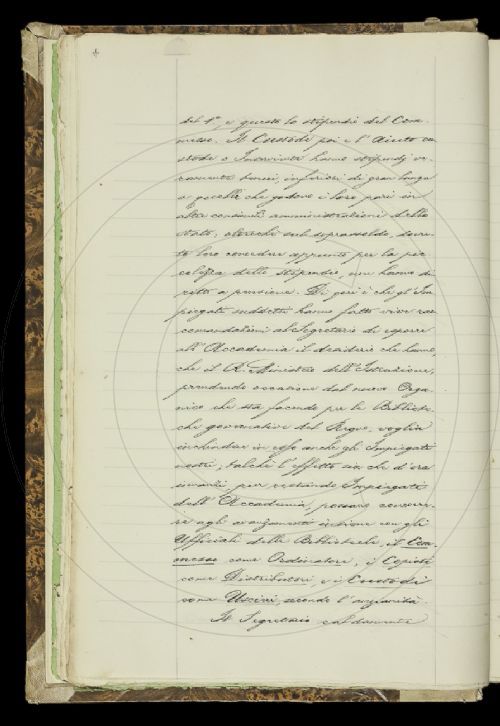 del 1°, e questo lo stipendio del Com-
messo. Il Custode poi e l'Aiuto cu
stode o Inserviente hanno stipendj ve
ramente tenui, inferiori di gran lunga
a quelli che godono i loro pari in
altre consimili amministrazioni dello
Stato; oltrechè sul soprassoldo, dovu-
to loro concedere appunto per la pic
colezza dello stipendio, non hanno di
ritto a pensione. Di quì è che gl'Im
piegati suddetti hanno fatto vive rac
comandazioni al Segretario di esporre
all'Accademia il desiderio che hanno,
che il R. Ministro dell'Istruzione,
prendendo occasione dal nuovo Orga-
nico che sta facendo per le Bibliote-
che governative del Regno, voglia
includere in esso anche gli Impiegati
nostri; talchè l'effetto sia che d'ora
innanzi, pur restando Impiegati
dell'Accademia, possano concorre-
re agli avanzamenti insieme con gli
Ufficiali delle Biblioteche, il Com-
messo come Ordinatore, i Copisti
come Distributori, e i Custodi
come Uscieri, secondo l'anzianità.
Il Segretario caldamente